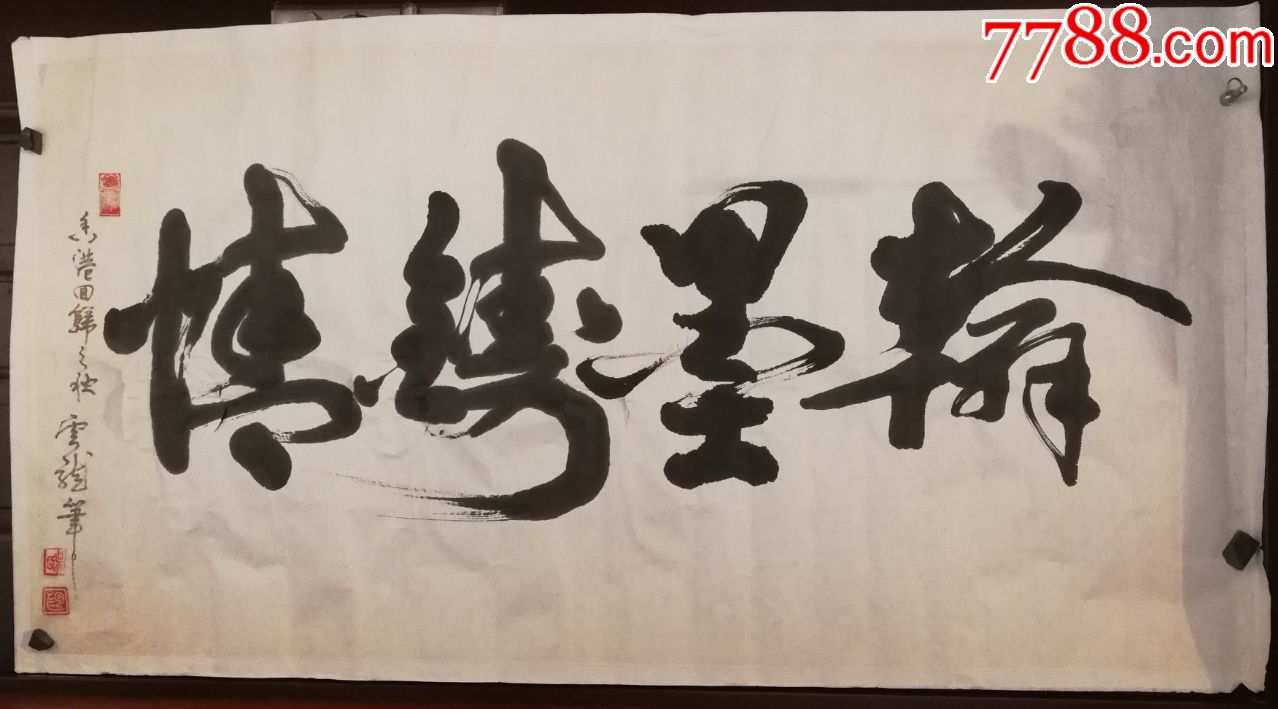 7788.com
翰墨鑄情
香港回歸之秋 雲龍筆